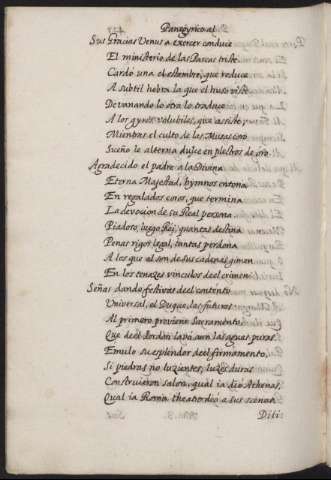 Panegyrico al
Sus Gracias Venus a exercer conduce
El ministerio de las Parcas triste
Cardó una el estambre, que reduce
A subtil hebra la que el huso viste
Devanando lo otra lo traduce
A los gyros volubiles, que assiste
Mientras el culto de las Musas coro
Sueño le alterna dulce en plectros de oro.
Agradecido el padre a la Divina
Eterna Majestad, hymnos entona
En regalados coros, que termina
La devocion de su Real persona
Piadoso, luego Rei, quantas destina
Penas rigor legal, tantas perdona
A los que al son de sus cadenas gimen
En los tenazes vinculos del crimen
Señas dando festivas del contento
Universal, el Duque, las futuras
Al primero previene Sacramento
Que del Jordan lavó aun las aguas puras.
Emulo su esplendor de el firmamento,
Si piedras no luzientes, luzes duras
Construieron salon, qual ia dio Athenas,
Qual ia Roma theatro dió a sus scenas